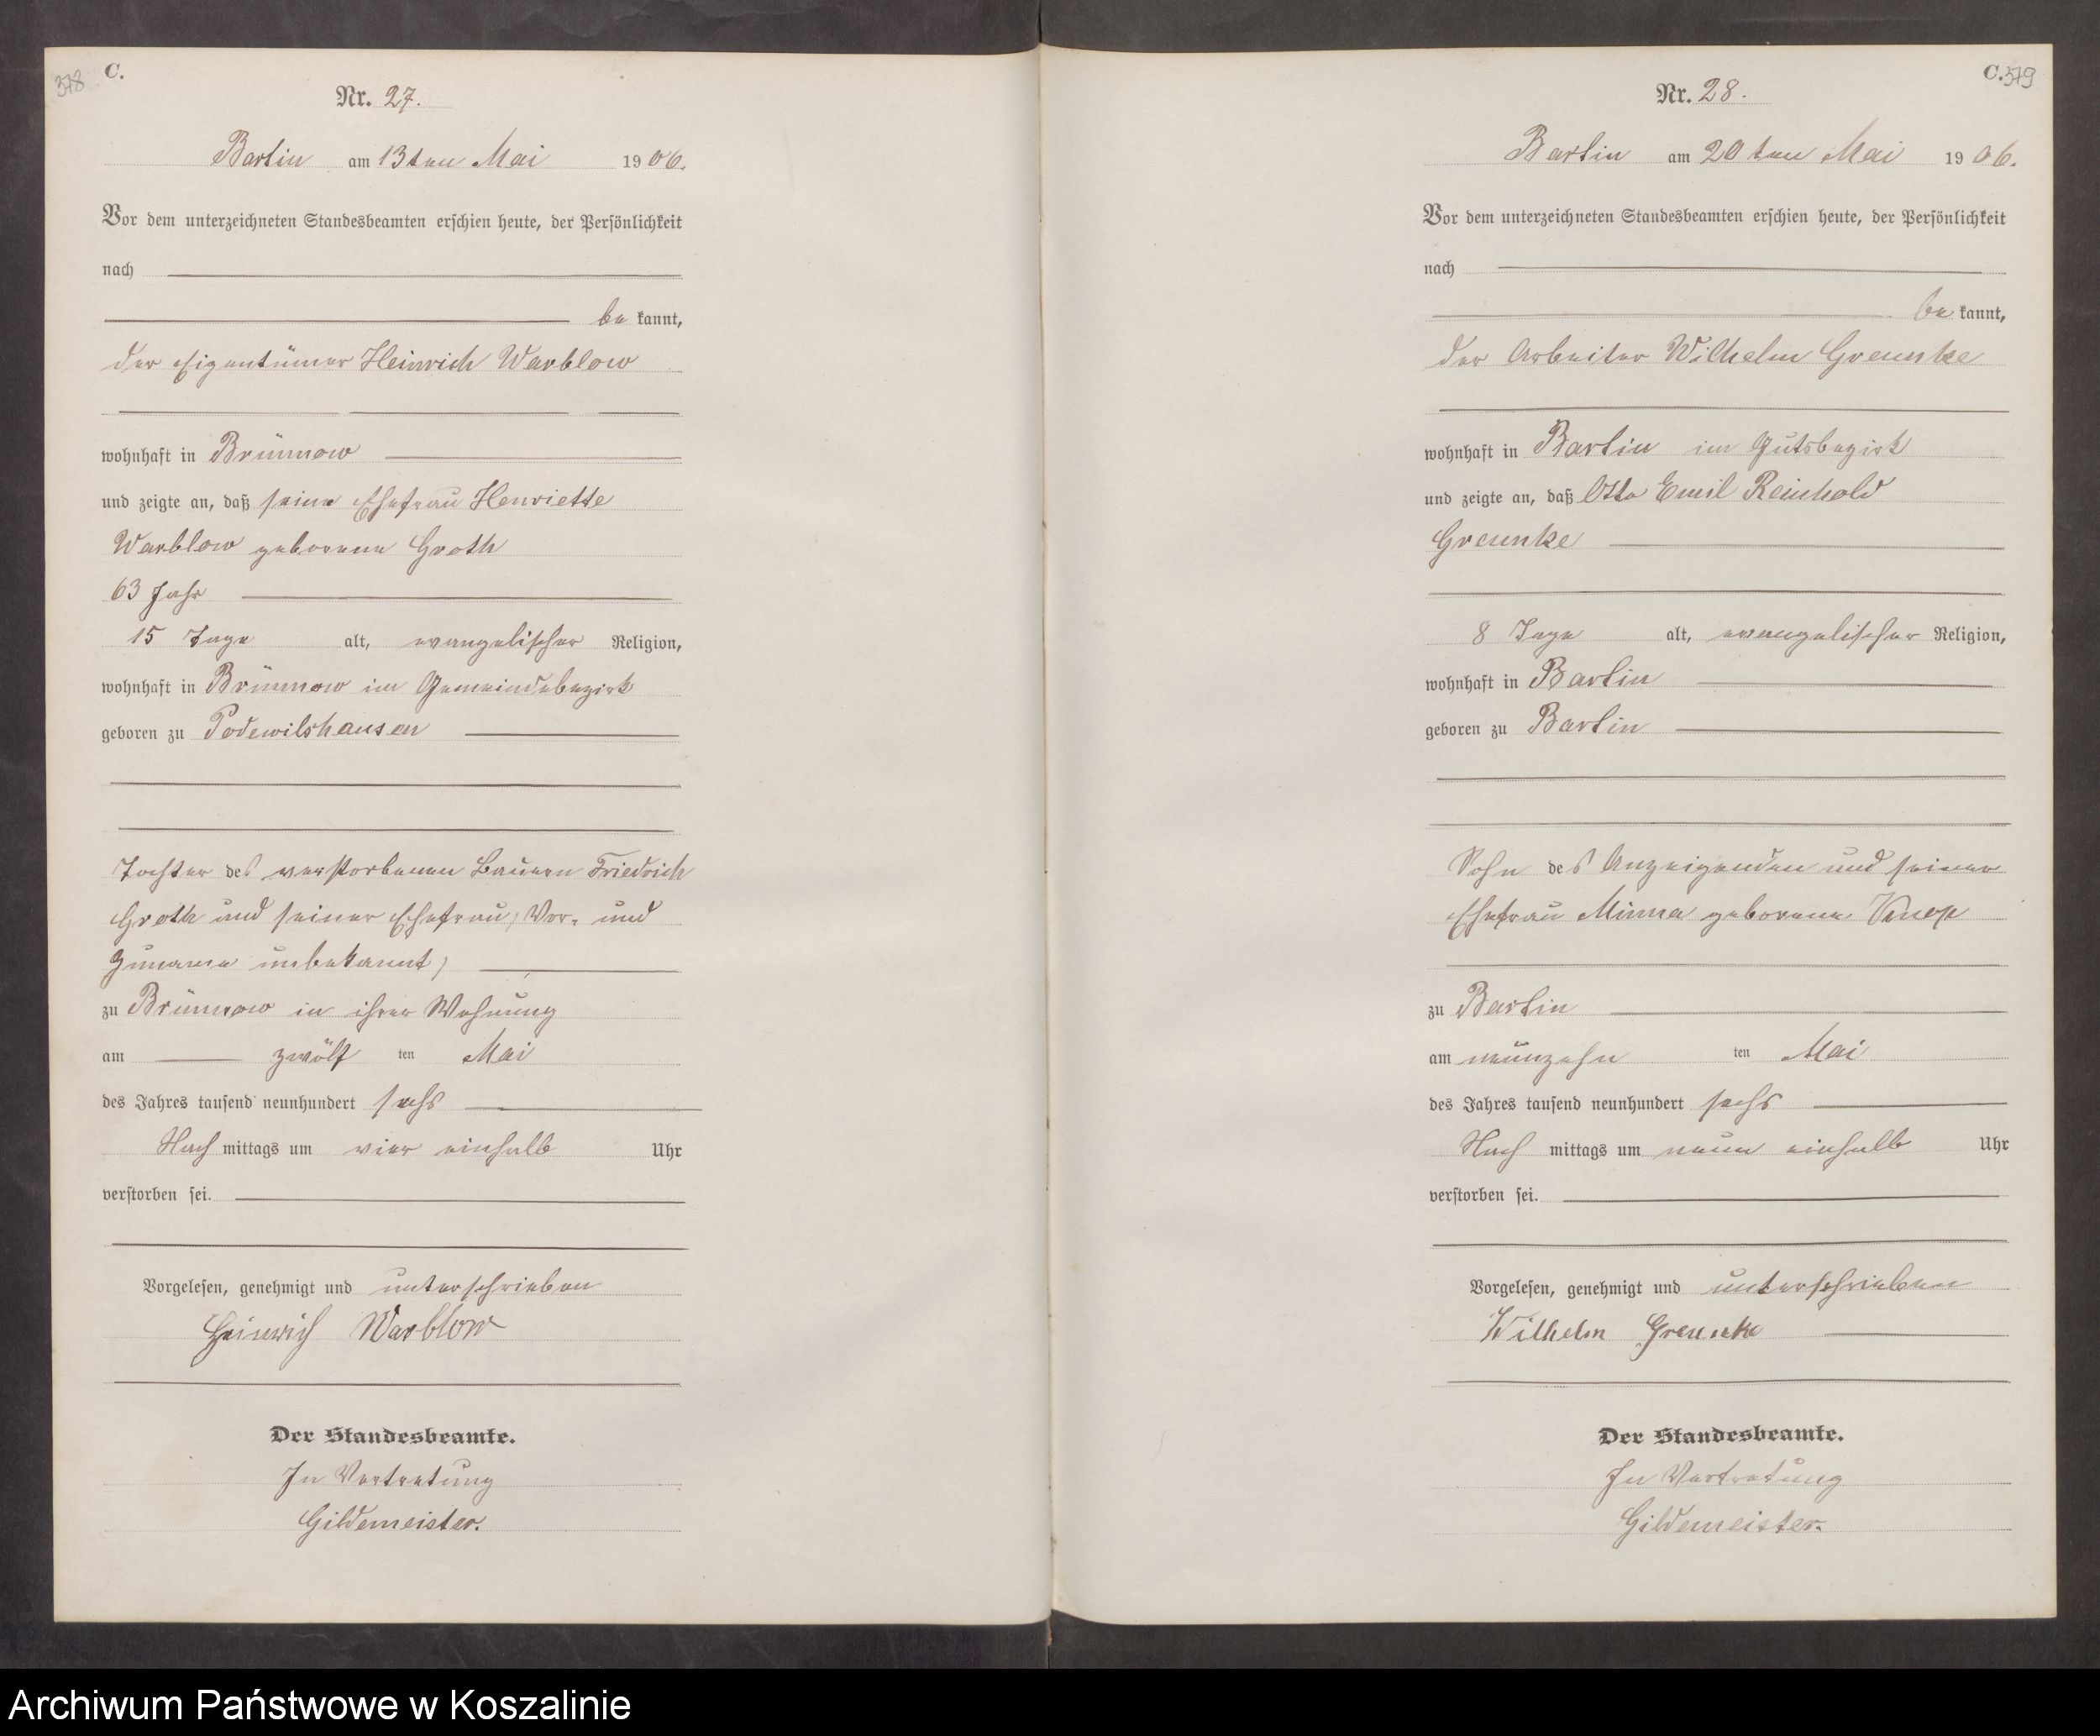 378
C.
Nr. 27.
Bartin am 13ten Mai 1906.
Vor dem unterzeichneten Standesbeamten erschien heute, der Persönlichkeit
nach
be kannt,
der Eigentümer Heinrich Warblow
wohnhaft in Brünnow
und zeigte an, daß seine Ehefrau Henriette
Warblow geborene Groth
63 Jahr
15 Tage alt, evangelischer Religion,
wohnhaft in Brünnow im Gemeindebezirk
geboren zu Podewilshausen
Tochter des verstorbenen Bauern Friedrich
Groth und seiner Ehefrau, Vor- und
Zuname unbekannt,
zu Brünnow in ihrer Wohnung
am zwölf ten Mai
des Jahres tausend neunhundert sechs
Nach mittags um vier einhalb Uhr
verstorben sei.
Vorgelesen, genehmigt und unterschrieben
Heinrich Warblow
Der Standesbeamte.
In Vertretung
Gildemeister.
C. 379
Nr. 28.
Bartin am 20ten Mai 1906.
Vor dem unterzeichneten Standesbeamten erschien heute, der Persönlichkeit
nach
be kannt,
der Arbeiter Wilhelm Greunke
wohnhaft in Bartin im Gutsbezirk
und zeigte an, daß Otto Emil Reinhold
Greunke
8 Tage alt, evangelischer Religion,
wohnhaft in Bartin
geboren zu Bartin
Sohn des Anzeigenden und seiner
Ehefrau Minna geborene
zu Bartin
am neunzehn ten Mai
des Jahres tausend neunhundert sechs
Nach mittags um neun einhalb Uhr
verstorben sei.
Vorgelesen, genehmigt und unterschrieben
Wilhelm Greunke
Der Standesbeamte.
In Vertretung
Gildemeister.
Archiwum Państwowe w Koszalinie